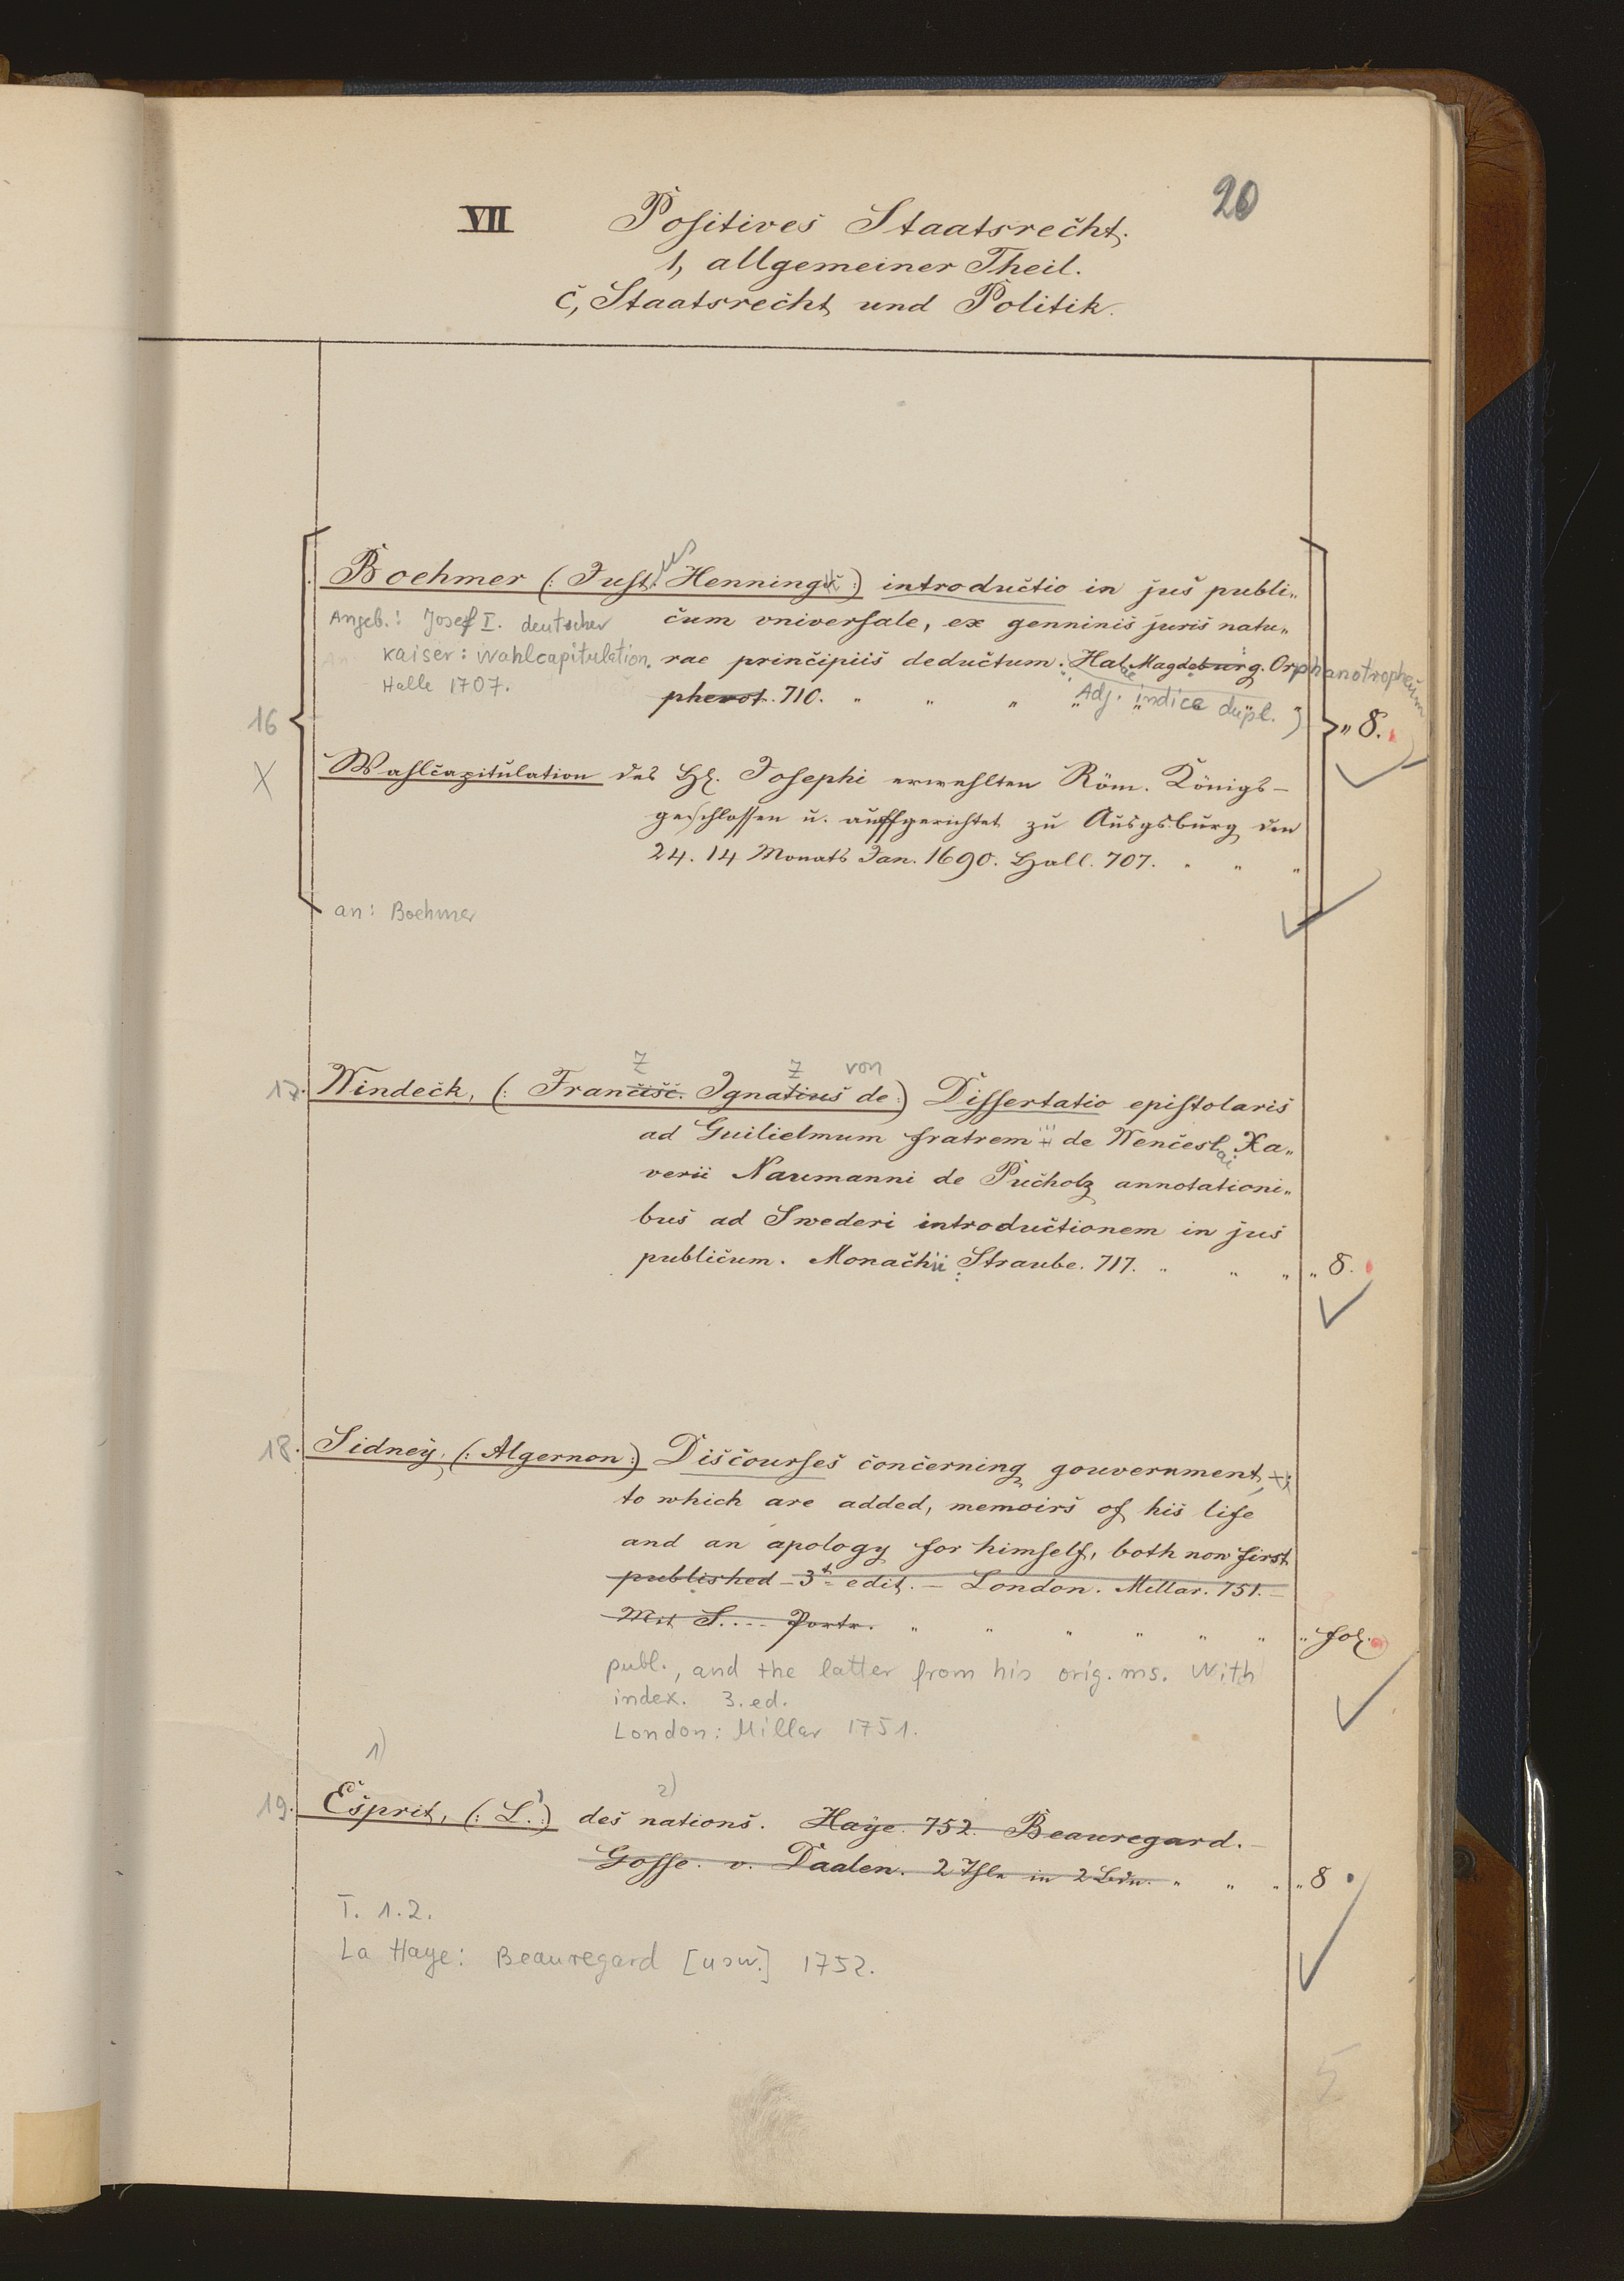 20
VII Positives Staatsrecht.
1, allgemeiner Theil.
c, Staatsrecht und Politik.
Boehmer (: Just. us Henning :) introductio in jus publi„
Angeb.: Josef I. deutscher
cum universale, ex genninis juris natu„
Kaiser: Wahlcapitulation.
rae principiis deductum. Halae Magdeburg. Orphanotropheum
Halle 1707.
pherot. 710. „ „ „ „
Adj. indice dupl.
16 „ 8.
X
Wahlcapitulation des H. Josephi erwehlten Röm. Königs-
geschlossen u. auffgerichtet zu Ausgsburg den
24. 14 Monats Jan. 1690. Hall. 707. „ „ „
an: Boehmer
z z von
17. Windeck, (: Francisc. Ignatius de :) Dissertatio epistolaris
ad Guilielmum fratrem de Wenceslai Xa„
verii Naumanni de Pucholz annotationi„
bus ad Swederi introductionem in jus
publicum. Monachii: Straube. 717. „ „ „ „ 8.
18. Sidney, (: Algernon :) Discourses concerning gouvernment,
to which are added, memoirs of his life
and an apology for himself, both now first
published - 3t edit. - London. Millar. 751. -
Mit S.... Portr. „ „ „ „ „ „ „ fol.
publ., and the latter from his orig. ms. With
index. 3. ed.
London: Millar 1751.
1) 2)
19. Esprit, (: L.' :) des nations. Haye. 752. Beauregard. -
Gosse. v. Daalen. 2 Thle in 2 Bdn. „ „ „ „ 8
T. 1.2.
La Haye: Beauregard [usw.] 1752.
5